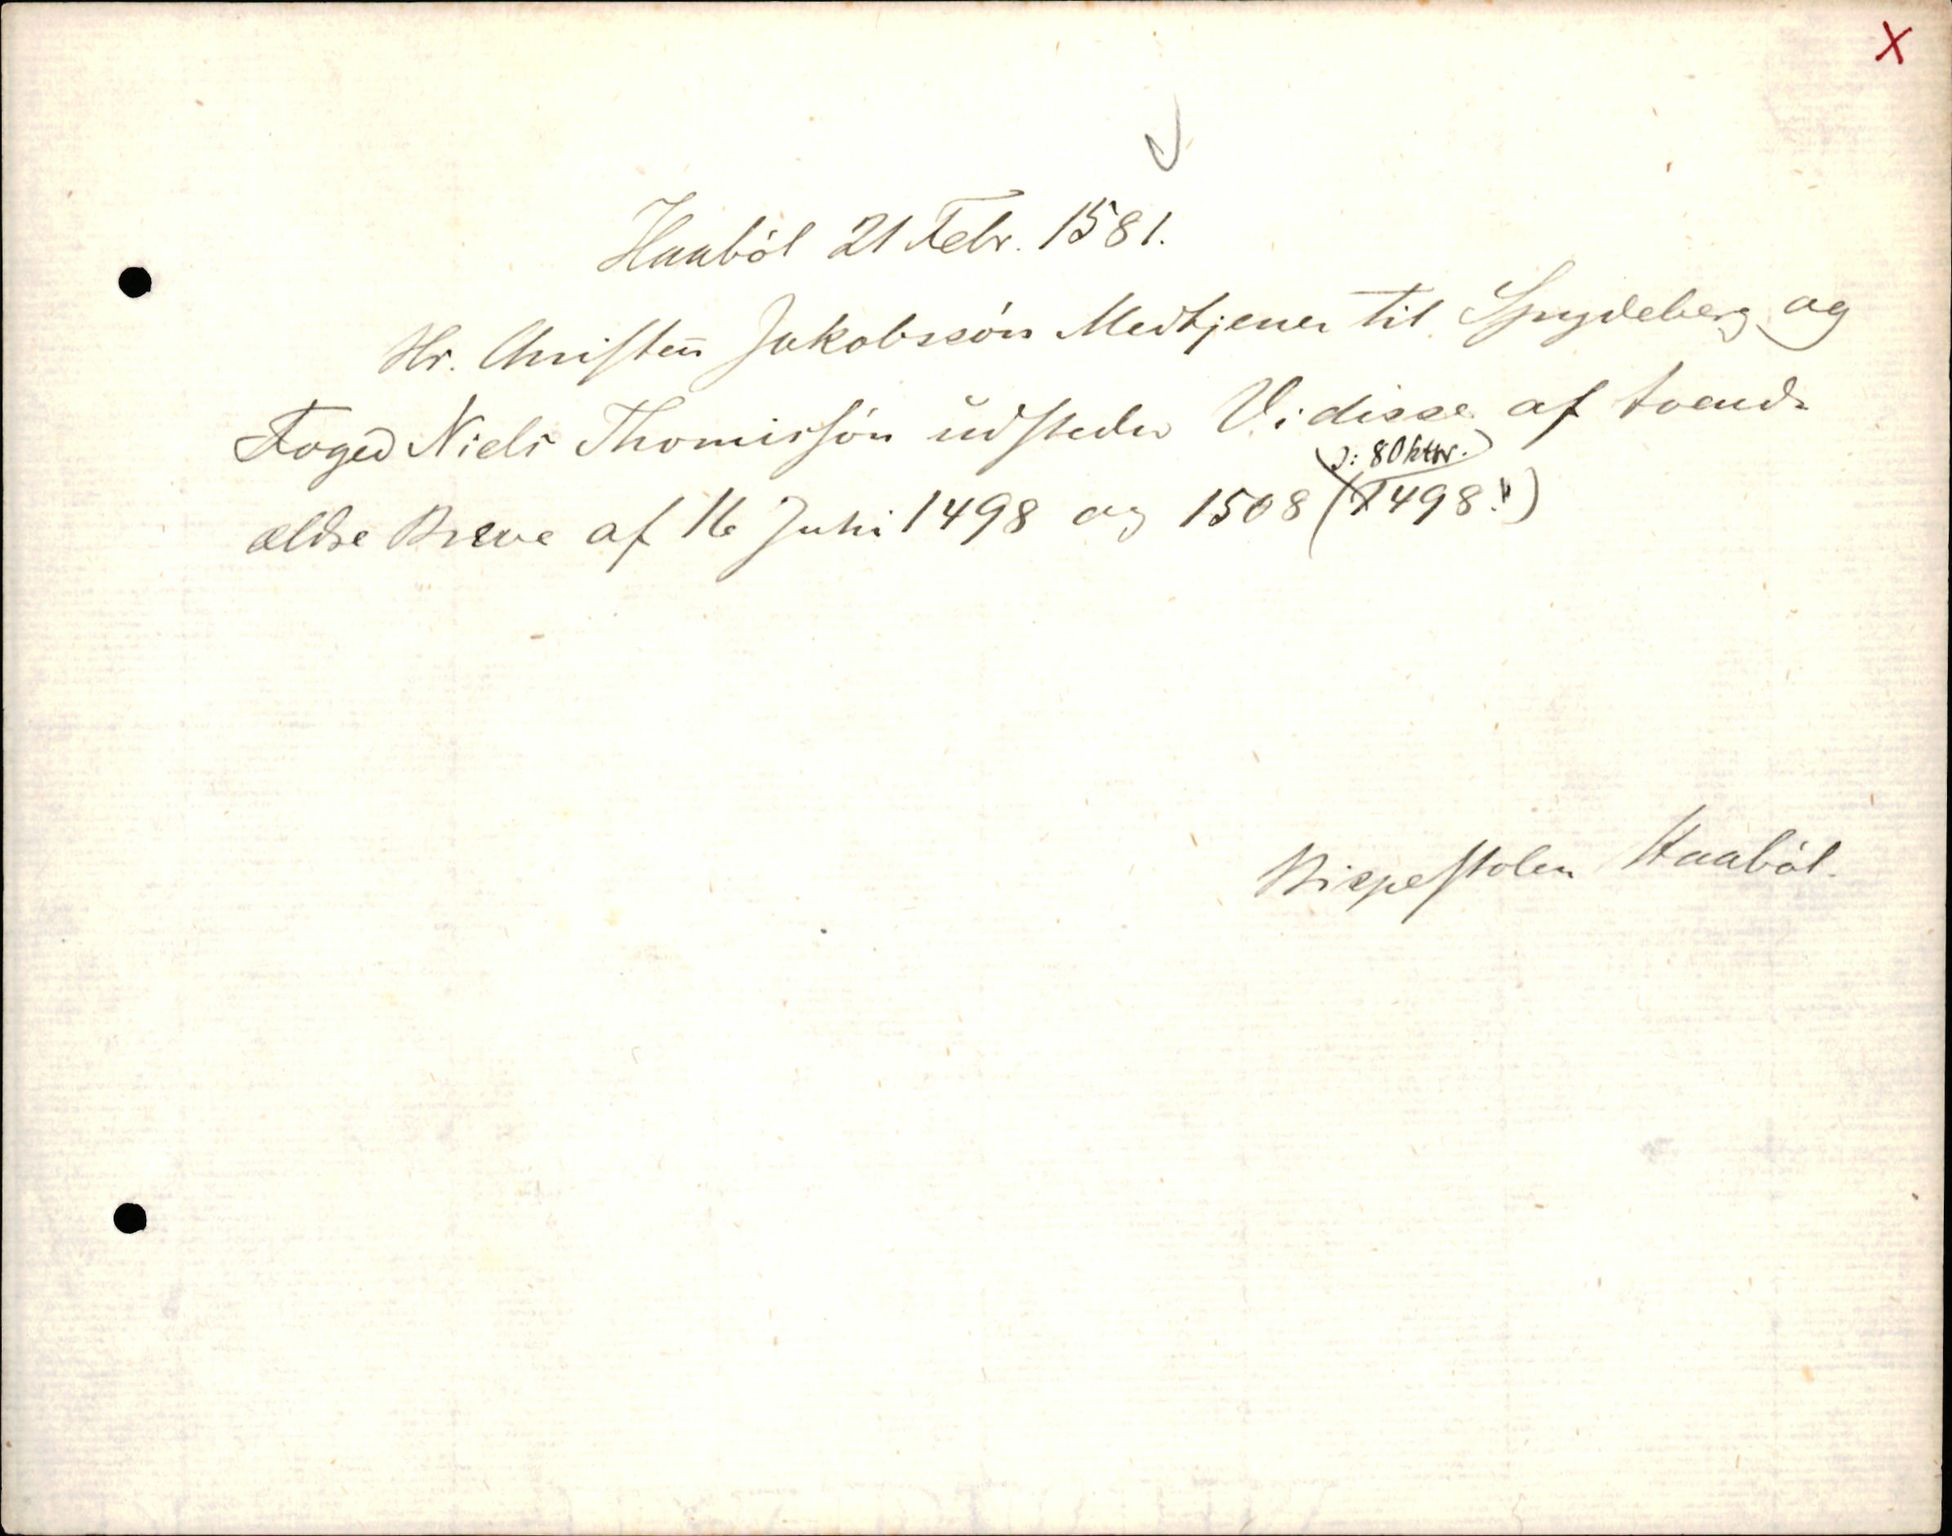 X
Haaböl 21 Febr. 1581.
Hr. Christen Jakobssön Medtjener til Spydeberg og
Foged Niels Thomissön udsteder Vidisse af tvende
(ɔ: 8 Oktbr.)
ældre Breve af 16 Juni 1498 og 1508 (1498!!)
Bispestolen Haaböl.